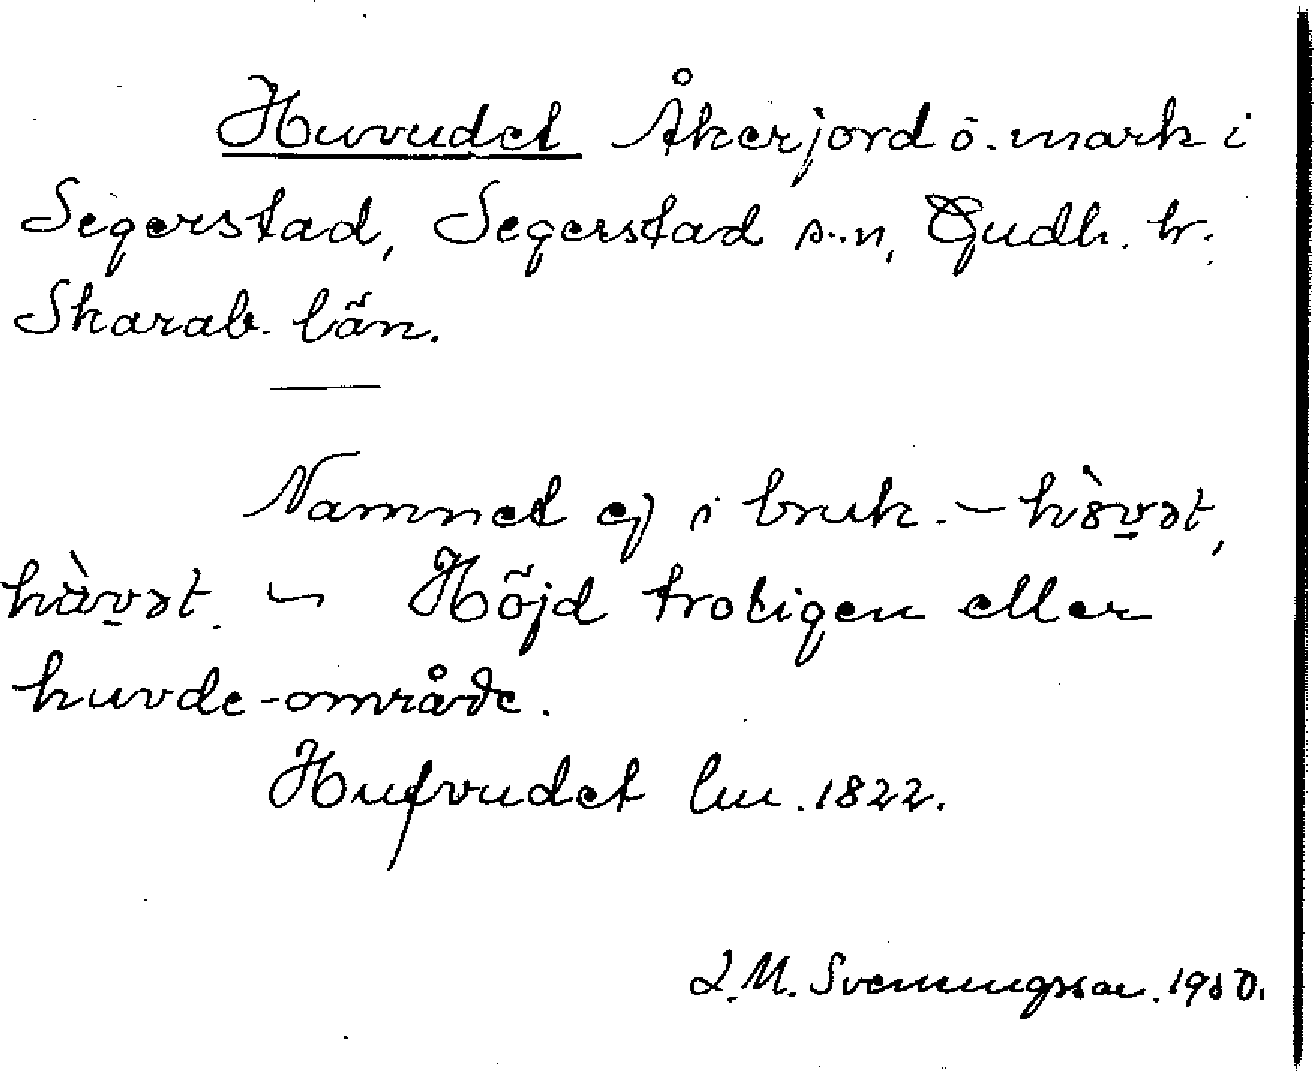 Huvudet Åkerjord o. mark i
Segerstad, Segerstad s-n, Gudh. hr.
Skarab. län.
Namnet ej i bruk. – hòv̲ət,
hàv̲ət. – Höjd troligen eller
huvde-område.
Hufvudet lm. 1822.
L.M. Svenungsson. 1930.